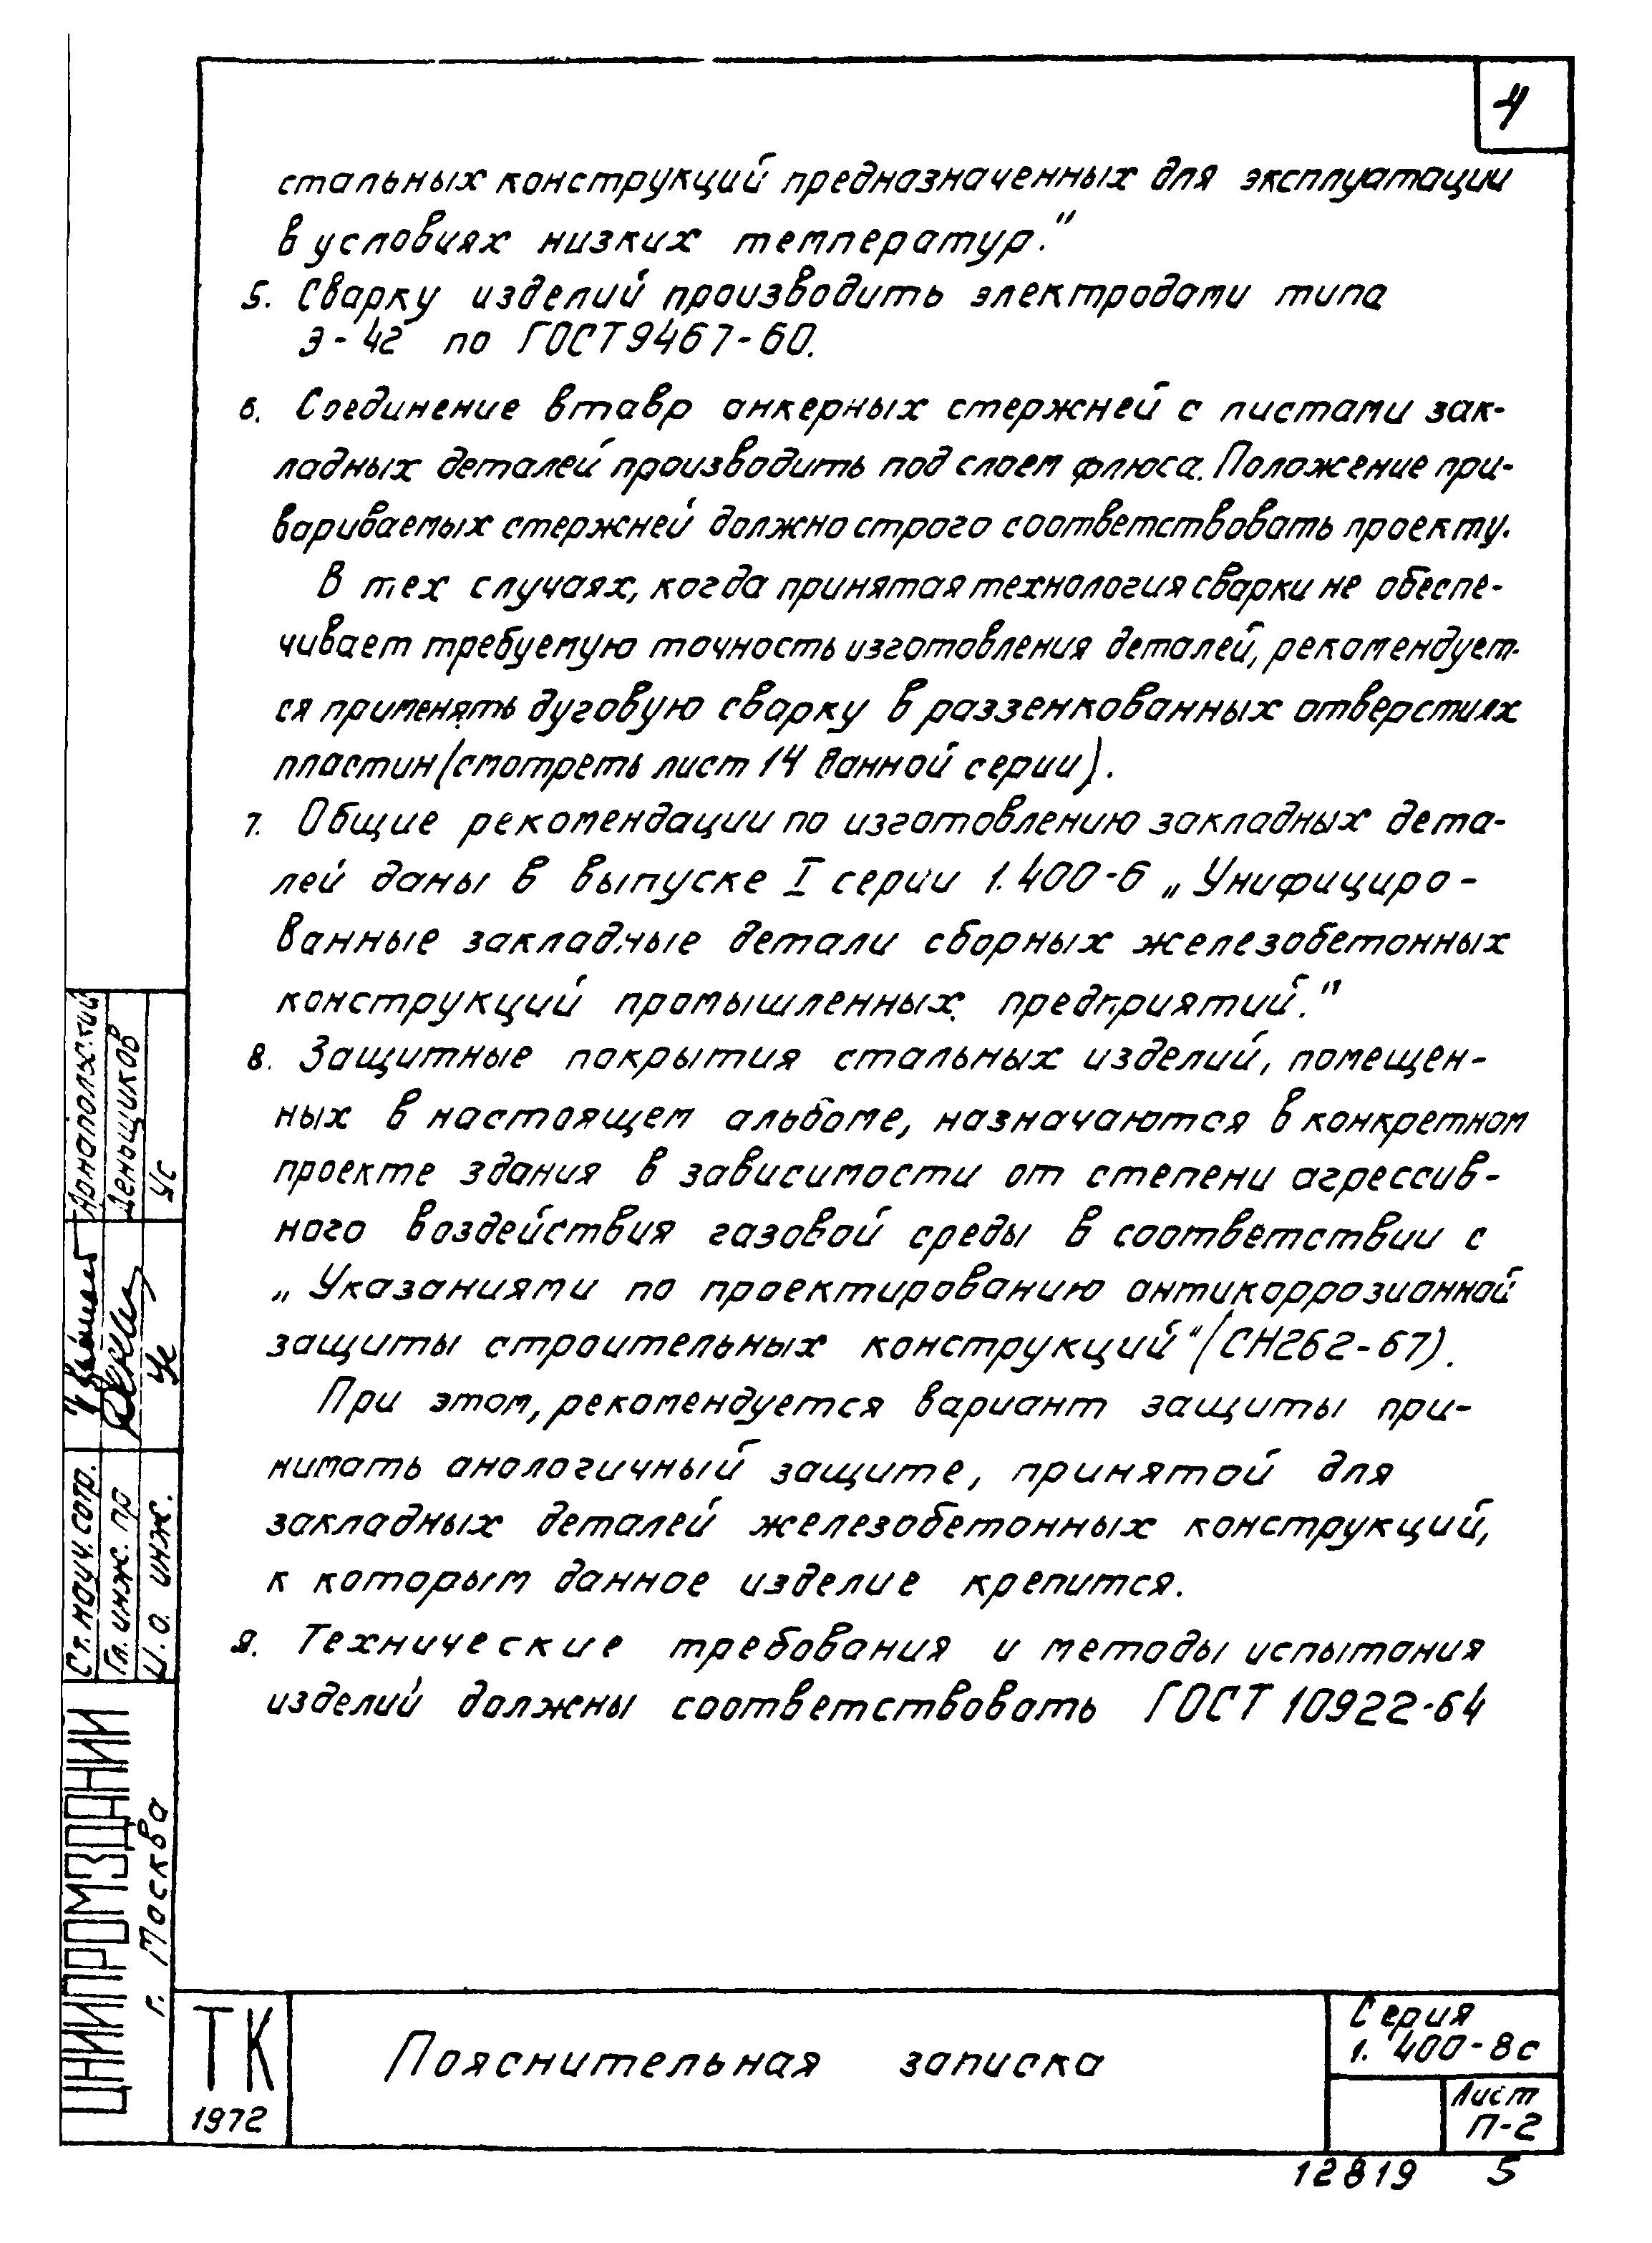 4
стальных конструкций предназначенных для эксплуатации
в условиях низких температур."
5. Сварку изделий производить электродами типа
Э-42 по ГОСТ 9467-60.
6. Соединение втавр анкерных стержней с листами зак-
ладных деталей производить под слоем флюса. Положение при-
вариваемых стержней должно строго соответствовать проекту.
В тех случаях, когда принятая технология сварки не обеспе-
чивает требуемую точность изготовления деталей, рекомендует-
ся применять дуговую сварку в раззенкованных отверстиях
пластин (смотреть лист 14 данной серии).
7. Общие рекомендации по изготовлению закладных дета-
лей даны в выпуске I серии 1.400-6 „Унифициро-
ванные закладные детали сборных железобетонных
конструкций промышленных предприятий."
8. Защитные покрытия стальных изделий, помещен-
ных в настоящем альбоме, назначаются в конкретном
проекте здания в зависимости от степени агрессив-
ного воздействия газовой среды в соответствии с
„Указаниями по проектированию антикоррозионной
защиты строительных конструкций" (СН262-67).
При этом, рекомендуется вариант защиты при-
нимать анологичный защите, принятой для
закладных деталей железобетонных конструкций,
к которым данное изделие крепится.
9. Технические требования и методы испытания
изделий должны соответствовать ГОСТ 10922-64
ЦНИИПРОМЗДАНИЙ
г. Москва
Ст. науч. сотр. Армапольский
Гл. инж. пр Деньщиков
И. О. инж.
ТК
1972
Пояснительная записка
Серия
1.400-8с
Лист
П-2
12819 5